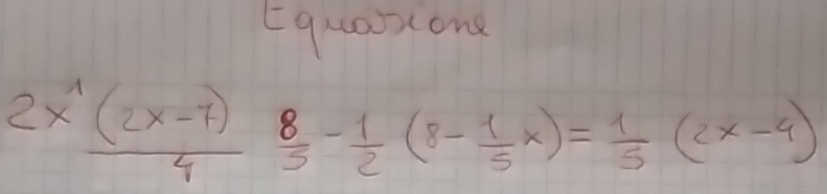 Equazione
2x¹ (2x-7)/4 8/5 - 1/2 (8 - 1/5 x) = 1/5 (2x-4)